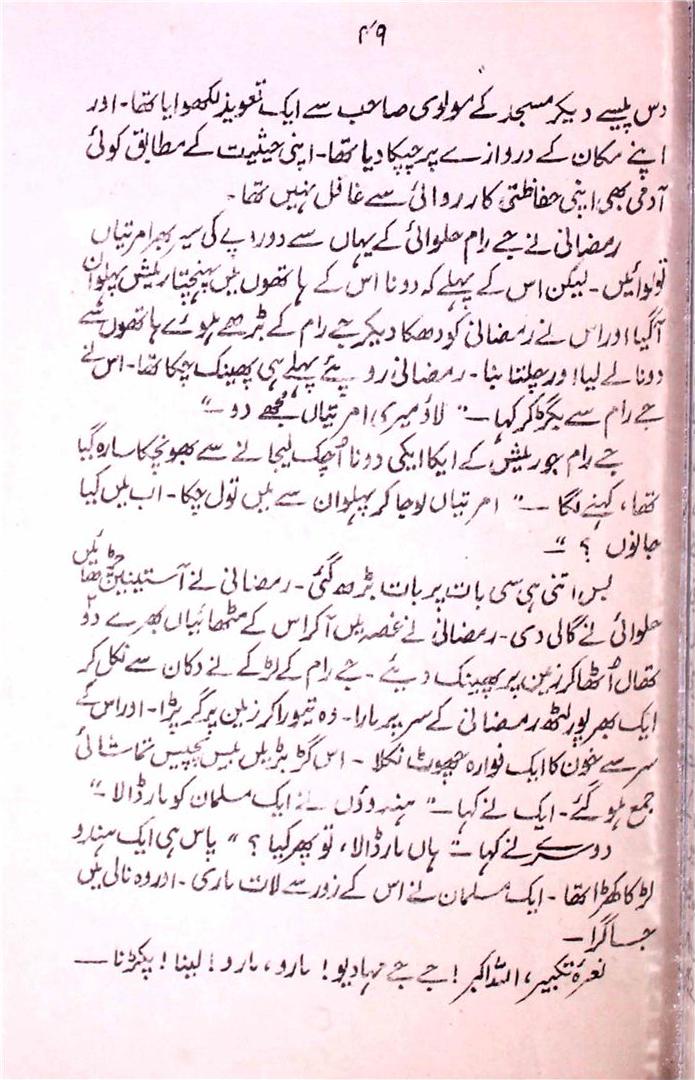 ۴۹
دس پیسے دیکر مسجد کے مولوی صاحب سے ایک تعویذ لکھوایا تھا۔ اور
اپنے مکان کے دروازے پر چپکا دیا تھا۔ اپنی حیثیت کے مطابق کوئی
آدمی بھی اپنی حفاظتی کارروائی سے غافل نہیں تھا۔
رمضانی نے جے رام حلوائی کے یہاں سے دو روپے کی سیر بھر امرتیاں
تولوائیں۔ لیکن اس کے پہلے کہ دونا اس کے ہاتھوں میں پہنچتا ریمش پہلوان
آگیا اور اس نے رمضانی کو دھکا دیکر جے رام کے بڑھے ہوئے ہاتھوں سے
دونا لے لیا اور چلتا بنا۔ رمضانی روپئے پہلے ہی پھینک چکا تھا۔ اس نے
جے رام سے بگڑ کر کہا — " لاؤ میری امرتیاں مجھے دو ۔"
جے رام جو ریمش کے ایکا ایکی دونا اُچک لیجانے سے بھونچکا سا رہ گیا
تھا، کہنے لگا — " امرتیاں لو جا کر پہلوان سے میں تول چکا۔ اب میں کیا
جانوں ؟ "—
بس اتنی ہی سی بات پر بات بڑھ گئی۔ رمضانی نے آستینیں چڑھائیں
حلوائی نے گالی دی۔ رمضانی نے غصہ میں آکر اس کے مٹھائیاں بھرے دو
تھال اُٹھا کر زمین پر پھینک دیئے ۔ جے رام کے لڑکے نے دکان سے نکل کر
ایک بھرپور لٹھ رمضانی کے سر پر مارا۔ وہ تیورا کر زمین پر گر پڑا۔ اور اس کے
سر سے خون کا ایک فوارہ چھوٹ نکلا ۔ اس گڑبڑ میں بیس پچیس تماشائی
جمع ہو گئے۔ ایک نے کہا — " ہندوؤں نے ایک مسلمان کو مار ڈالا ۔"
دوسرے نے کہا — " ہاں مار ڈالا، تو پھر کیا ؟ " پاس ہی ایک ہندو
لڑکا کھڑا تھا ۔ ایک مسلمان نے اس کے زور سے لات ماری ۔ اور وہ نالی میں
جا گرا —
نعرۂ تکبیر، اللہ اکبر ! جے جے مہادیو ! مارو، مارو ! لینا ! پکڑنا —